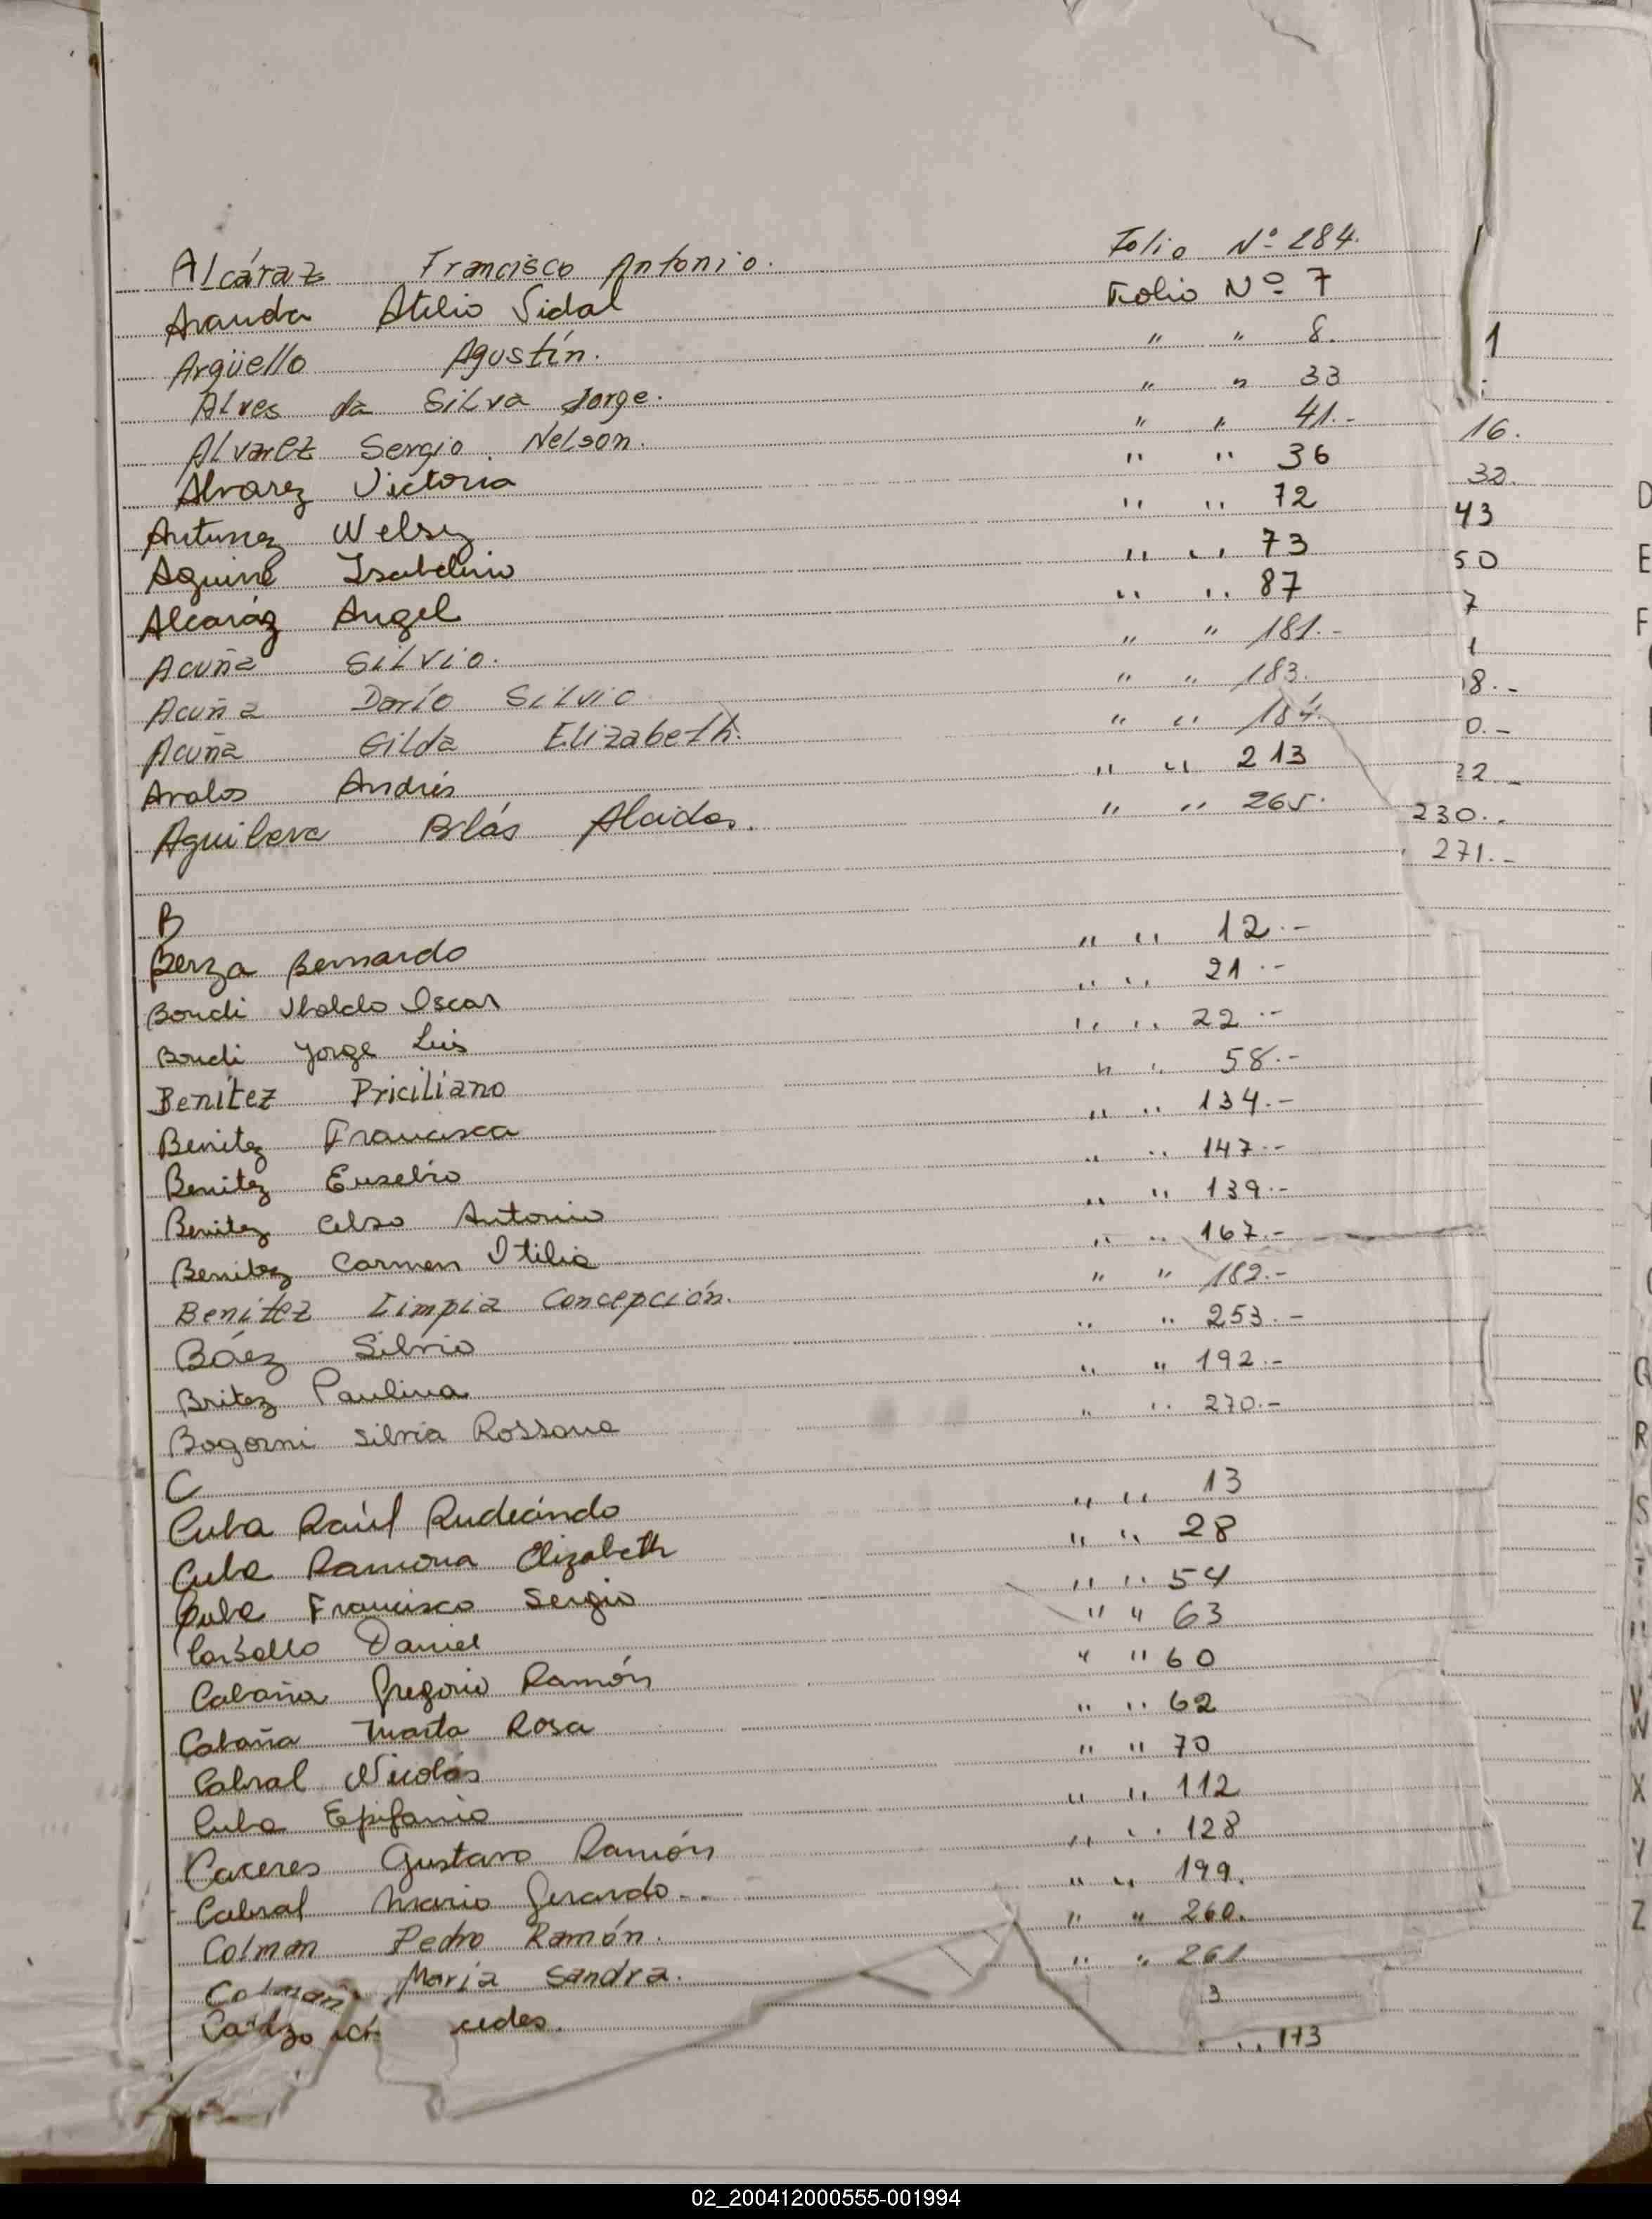 Alcáraz Francisco Antonio. Folio Nº 284.
Aranda Atilio Vidal Folio Nº 7
Argüello Agustín. " " 8.
Alves da Silva Jorge. " " 33
Alvarez Sergio Nelson. " " 41.-
Alvarez Victoria " " 36
Antunez Nelsy " " 72
Aguirre Isabelino " " 73
Alcaráz Angel " " 87
Acuña Silvio. " " 181.-
Acuña Darío Silvio " " 183.
Acuña Gilda Elizabeth. " " 184.
Avalos Andrés " " 213
Aguilera Blás Alcides. " " 265.
B
Berza Bernardo " " 12.-
Bondi Ubaldo Oscar " " 21.-
Bondi Jorge Luis " " 22.-
Benítez Priciliano " " 58.-
Benitez Francisca " " 134.-
Benitez Eusebio " " 147.-
Benitez Celso Antonio " " 139.-
Benitez Carmen Otilia " " 167.-
Benítez Limpia Concepción. " " 182.-
Báez Silvio " " 253.-
Britez Paulina " " 192.-
Bogorni Silvia Rossana " " 270.-
C
Cuba Raúl Rudecindo " " 13
Cuba Ramona Elizabeth " " 28
Cuba Francisco Sergio " " 54
Carballo Daniel " " 63
Cabaña Gregorio Ramón " " 60
Cabaña Marta Rosa " " 62
Cabral Nicolás " " 70
Cuba Epifanio " " 112
Caceres Gustavo Ramón " " 128
Cabral Mario Gerardo. " " 199.
Colman Pedro Ramón. " " 260.
Colman María Sandra. " " 261
3
" 173
1
16.
32.
43
50
7
1
8.-
0.-
22.-
230..
271.-
D
E
F
Q
R
S
T
U
V
W
X
Y
Z
02_200412000555-001994